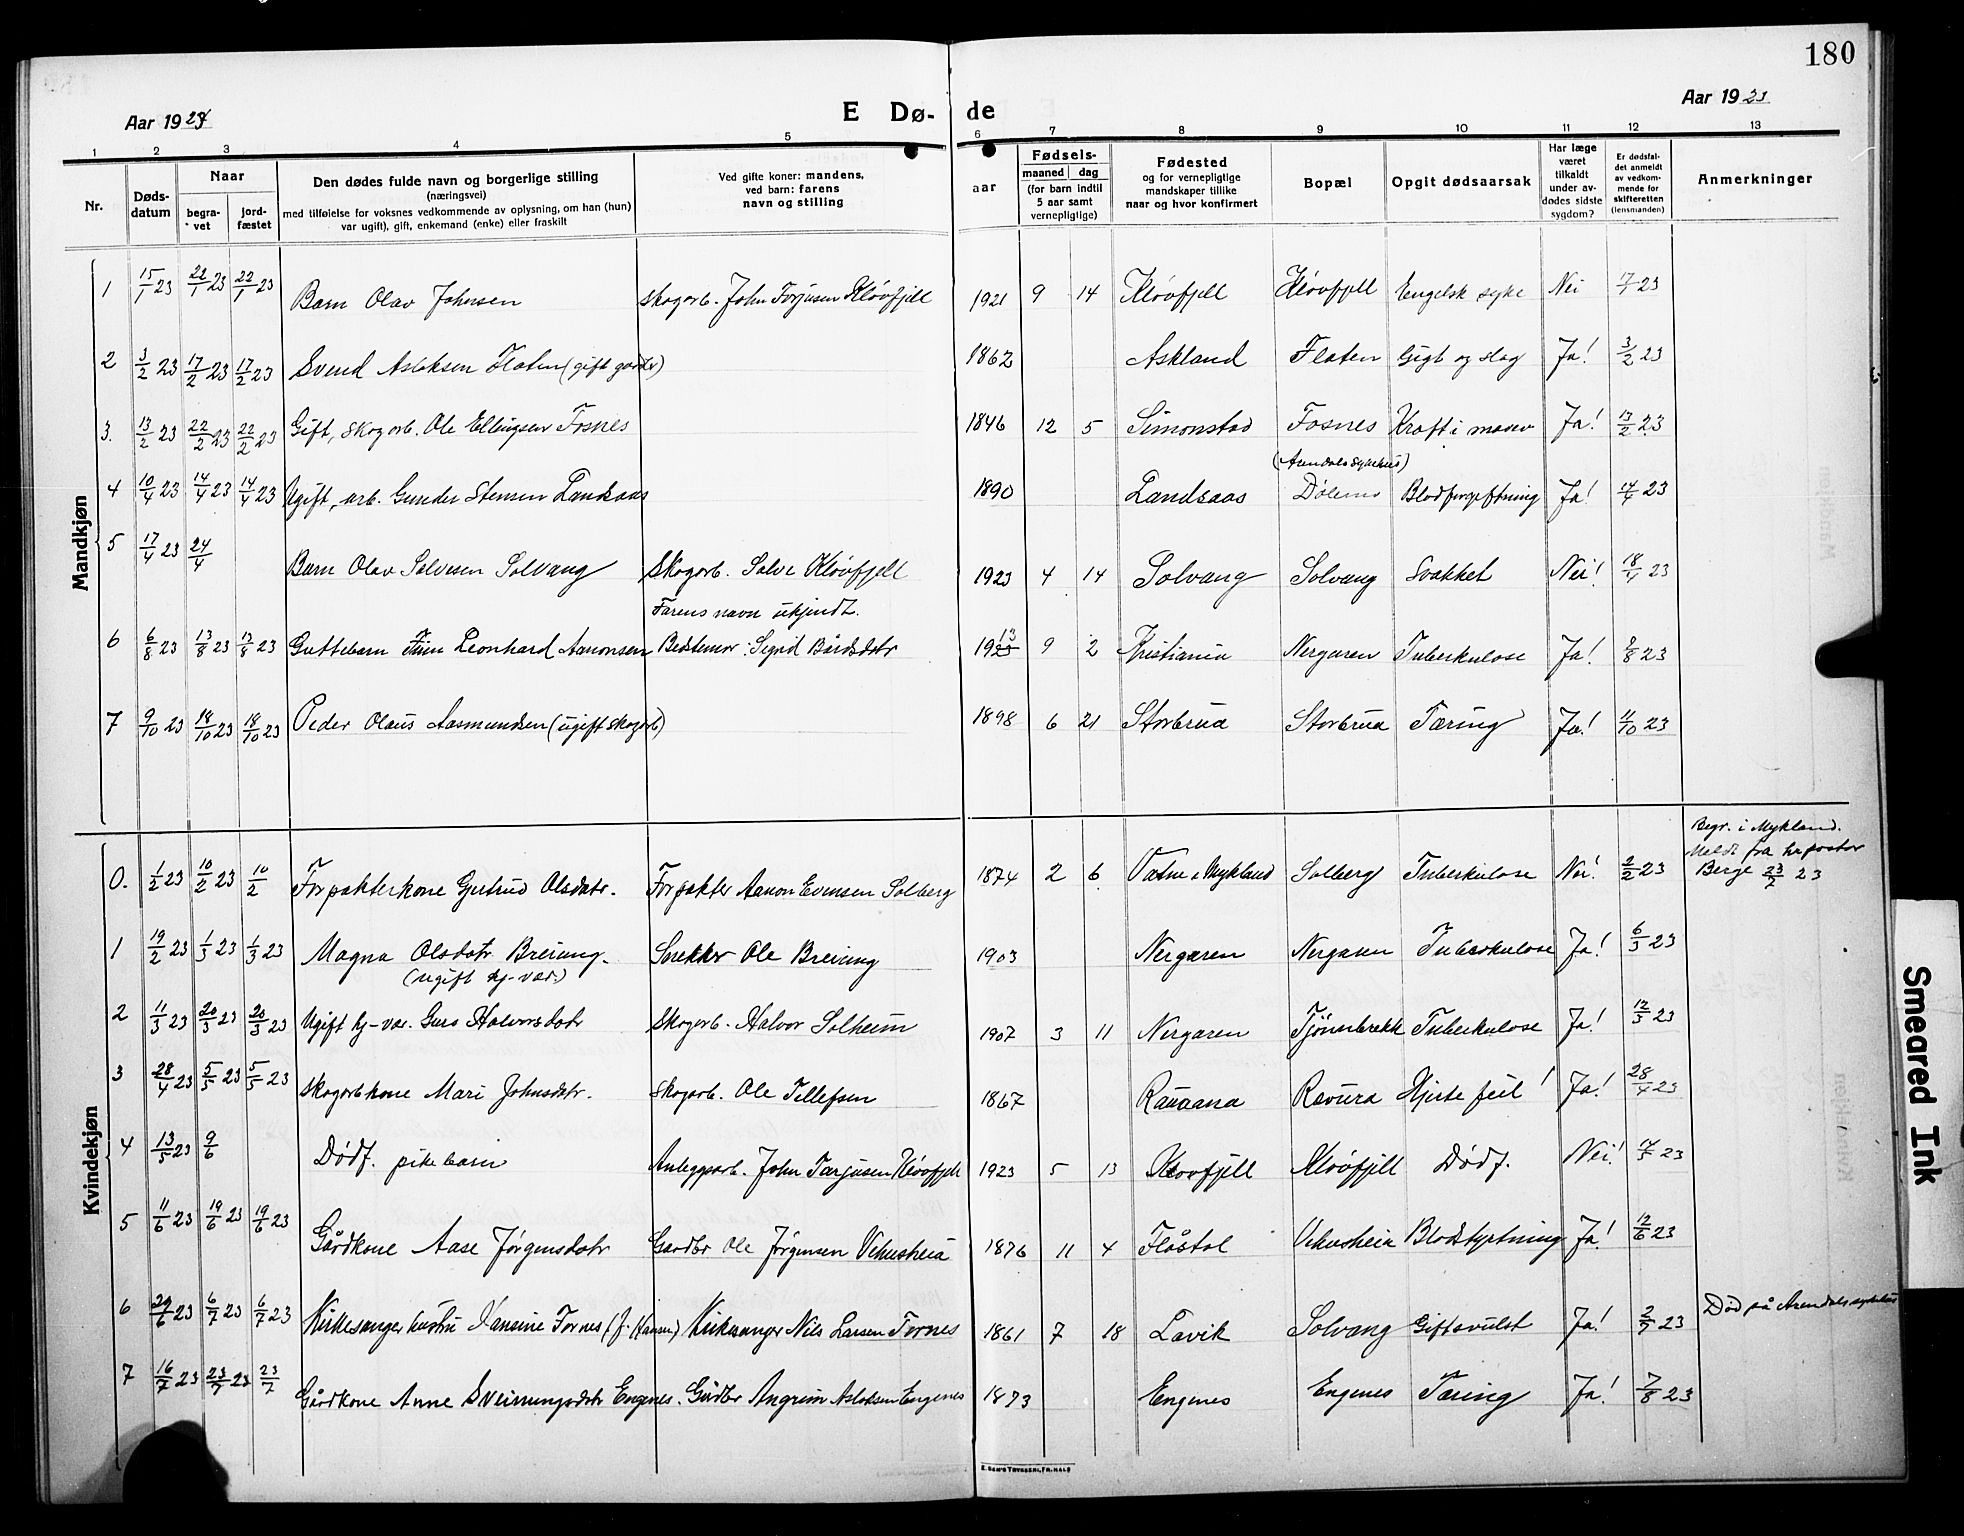 180
Aar 1923
E Dø- de
Aar 1923
1 2 3 4 5 6 7 8 9 10 11 12 13
Nr.
Døds-
datum
Naar
begra-
vet
jord-
fæstet
Den dødes fulde navn og borgerlige stilling
(næringsvei)
med tilføielse for voksnes vedkommende av oplysning, om han (hun)
var ugift), gift, enkemand (enke) eller fraskilt
Ved gifte koner: mandens,
ved barn: farens
navn og stilling
aar
Fødsels-
maaned dag
(for barn indtil
5 aar samt
vernepligtige)
Fødested
og for vernepligtige
mandskaper tillike
naar og hvor konfirmert
Bopæl
Opgit dødsaarsak
Har læge
været
tilkaldt
under av-
dødes sidste
sygdom?
Er dødsfal-
det anmeldt
av vedkom-
mende for
skifteretten
(lensmanden)
Anmerkninger
Mandkjøn
1 15/1 23 22/1 23 22/1 23 Barn Olav Johnsen skogarb. John Torjusen Kløvfjell 1921 9 14 Kløvfjell Kløvfjell Engelsk syke Nei 17/1 23
2 3/2 23 17/2 23 17/2 23 Svend Aslaksen Flaten (gift gardbr) 1862 Askland Flaten Gigt og slag Ja! 3/2 23
3. 13/2 23 22/2 23 22/2 23 Gift, skogarb. Ole Ellingsen Fosnes 1846 12 5 Simonstad Fosnes Kræft i maven Ja! 13/2 23
(Arendals sykehus)
4 10/4 23 14/4 23 14/4 23 Ugift, arb. Gunder Stensen Landsaas 1890 Landsaas Dølemo Blodforgiftning Ja! 14/4 23
5 17/4 23 24/4 Barn Olav Salvesen Solvang Skogarb. Salve Kløvfjell 1923 4 14 Solvang Solvang Svakhet Nei! 18/4 23
Farens navn ukjendt.
6 6/8 23 13/8 23 13/8 23 Guttebarn Finn Leonhard Aanonsen Bestemor: Sigrid Bårdsdatr 1913 9 2 Kristiania Nergaren Tuberkulose Ja! 9/8 23
7 9/10 23 18/10 23 18/10 23 Peder Olaus Aasmundsen (ugift skogarb) 1898 6 21 Storbrua Storbrua Tæring Ja! 11/10 23
Kvindekjøn
Begr. i Mykland.
Meldt fra hr pastor
Berge 23/7 23
0. 1/2 23 10/2 23 10/2 Forpakterkone Gjetrud Olsdatr. Forpakter Aanon Evensen Solberg 1874 2 6 Vatne i Mykland Solberg Tuberkulose Nei! 2/2 23
1 19/2 23 1/3 23 1/3 23 Magna Olsdatr Breiung. Snekker Ole Breiung 1903 Nergaren Nergaren Tuberkulose Ja! 6/3 23
(ugift hj-vær.)
2 11/3 23 20/3 23 20/3 23 Ugift hj-vær. Guro Halvorsdatr Skogarb. Halvor Solheim 1907 3 11 Nergaren Tjønnbrekk Tuberkulose Ja! 12/3 23
3 28/4 23 5/5 23 5/5 23 Skogarbkone Mari Johnsdatr. Skogarb. Ole Tellefsen 1867 Rauaana Ravura Hjerte feil! Ja! 28/4 23
4 13/5 23 9/6 Dødf. pikebarn Anleggsarb. John Tarjusen Kløvfjell 1923 5 13 Kløvfjell Kløvfjell Dødf. Nei! 17/5 23
5 11/6 23 19/6 23 19/6 23 Gårdkone Aase Jørgensdatr Gardbr Ole Jørgensen Vehusheia 1876 11 4 Flåstøl Vehusheia Blodstyrtning Ja! 12/6 23
6 29/6 23 6/7 23 6/7 23 Kirkesanger hustru Jansine Fornes (f. Hansen) Kirkesanger Nils Larsen Fornes 1861 7 18 Lavik Solvang Giftsvulst Ja! 2/7 23 Død på Arendals sykehus
7 16/7 23 23/7 23 23/7 Gårdkone Anne Sveinungsdatr Engenes. Gårdbr Angrim Aslaksen Engenes 1873 Engenes Engenes Tæring Ja! 7/8 23
Smeared Ink